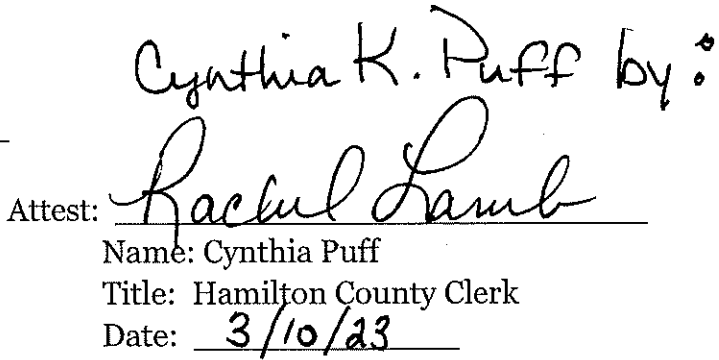 Cynthia K. Puff by:
Attest: Rachel Lamb
Name: Cynthia Puff
Title: Hamilton County Clerk
Date: 3/10/23